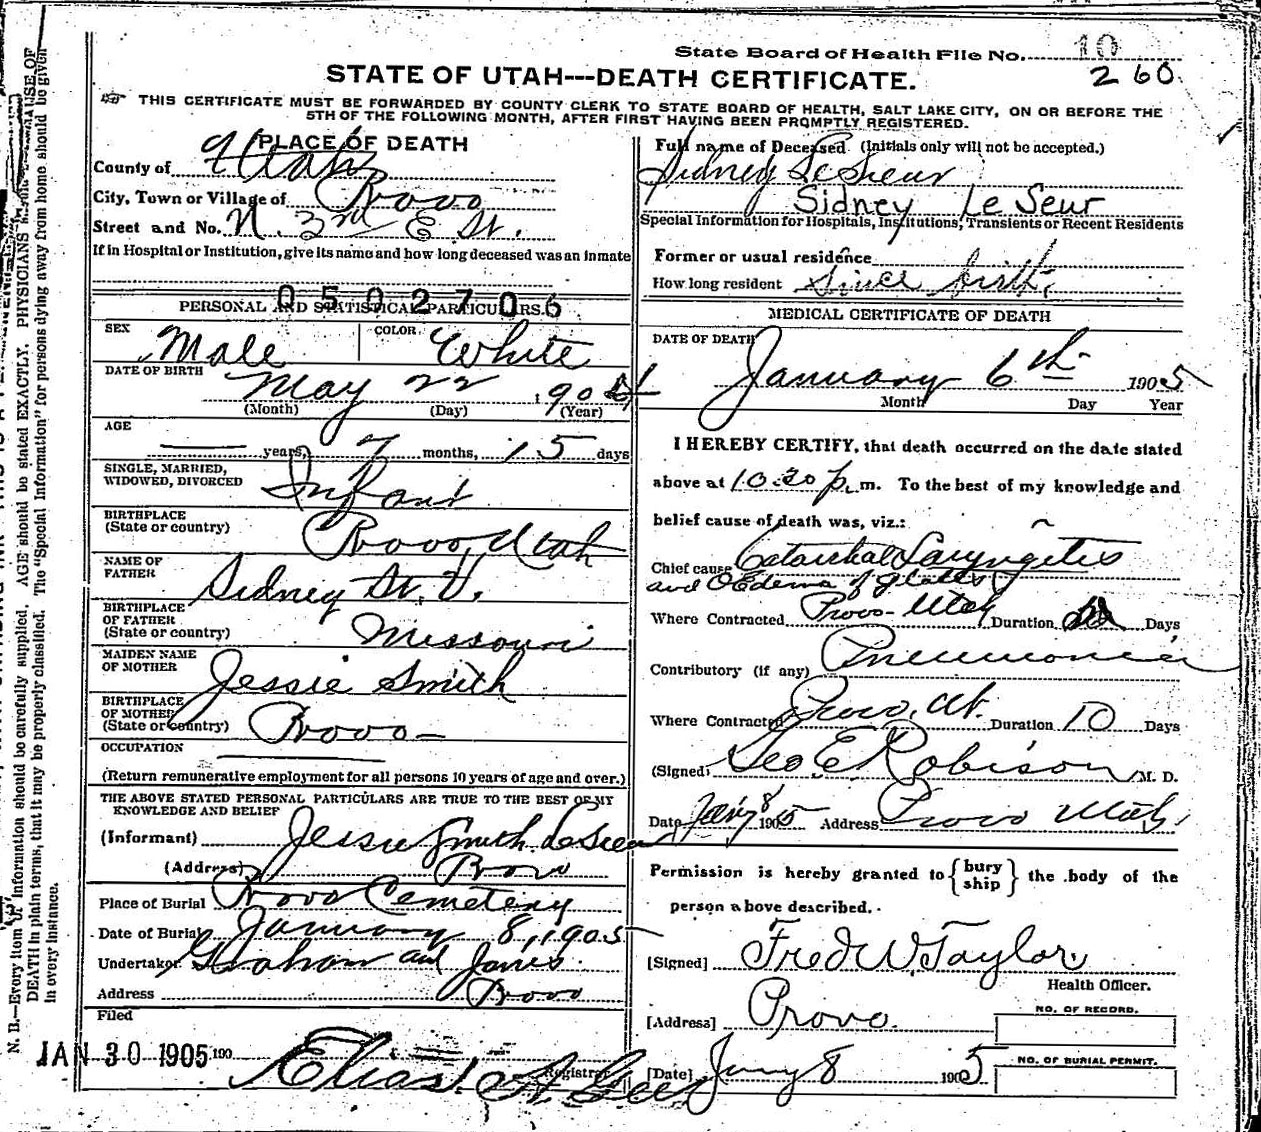 State Board of Health File No. 10
260.
STATE OF UTAH---DEATH CERTIFICATE.
THIS CERTIFICATE MUST BE FORWARDED BY COUNTY CLERK TO STATE BOARD OF HEALTH, SALT LAKE CITY, ON OR BEFORE THE
5TH OF THE FOLLOWING MONTH, AFTER FIRST HAVING BEEN PROMPTLY REGISTERED.
PLACE OF DEATH
County of Utah
City, Town or Village of Provo
Street and No. N. 3rd E St.
If in Hospital or Institution, give its name and how long deceased was an inmate
0502706
PERSONAL AND STATISTICAL PARTICULARS.
SEX Male COLOR White
DATE OF BIRTH May 22 1904
(Month) (Day) (Year)
AGE
years, 7 months, 15 days
SINGLE, MARRIED,
WIDOWED, DIVORCED Infant
BIRTHPLACE
(State or country) Provo, Utah
NAME OF
FATHER Sidney St. V.
BIRTHPLACE
OF FATHER
(State or country) Missouri
MAIDEN NAME
OF MOTHER Jessie Smith
BIRTHPLACE
OF MOTHER
(State or country) Provo
OCCUPATION
(Return remunerative employment for all persons 10 years of age and over.)
THE ABOVE STATED PERSONAL PARTICULARS ARE TRUE TO THE BEST OF MY
KNOWLEDGE AND BELIEF
(Informant) Jessie Smith LeSieur
(Address) Provo
Place of Burial Provo Cemetery
Date of Burial January 8, 1905
Undertaker Graham and Jones
Address Provo
Filed
JAN 30 1905 190
Elias A. Gee
Registrar
Full name of Deceased (Initials only will not be accepted.)
Sidney LeSieur
Sidney Le Seur
Special Information for Hospitals, Institutions, Transients or Recent Residents
Former or usual residence
How long resident Since birth.
MEDICAL CERTIFICATE OF DEATH
DATE OF DEATH
January 6th 1905
Month Day Year
I HEREBY CERTIFY, that death occurred on the date stated
above at 10:30 p. m. To the best of my knowledge and
belief cause of death was, viz.:
Chief cause Catarrhal Laryngetis
and OEdema of glottis
Where Contracted Provo Utah Duration Days
Contributory (if any) Pneumonia
Where Contracted Provo, Ut. Duration 10 Days
(Signed) Geo E Robison M. D.
Date Jany 8 1905 Address Provo Utah
Permission is hereby granted to { bury ship } the body of the
person above described.
[Signed] Fred W Taylor
Health Officer.
[Address] Provo.
NO. OF RECORD.
[Date] Jany 8 1905
NO. OF BURIAL PERMIT.
N. B.—Every item of information should be carefully supplied. AGE should be stated EXACTLY. PHYSICIANS CAUSE OF
DEATH in plain terms, that it may be properly classified. The "Special Information" for persons dying away from home should be given
in every instance.